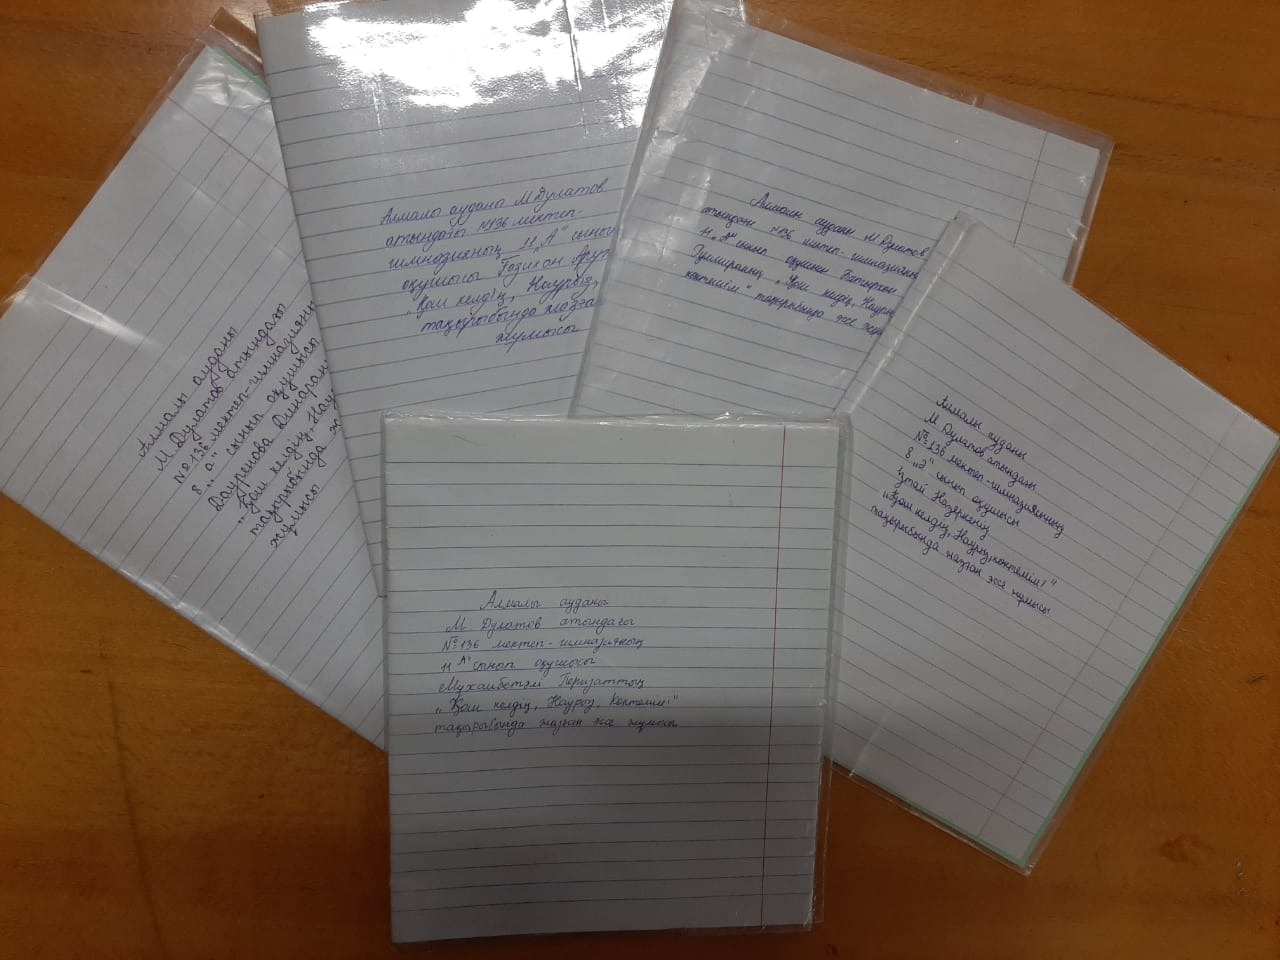 Алмалы ауданы
М Дулатов атындағы
№136 мектеп-гимназияны
8 "а" сынып оқушысы
Дауренова Динаран
"Қош келдің, Нау
тақырыбында жа
жұмысы
Алмалы ауданы М Дулатов
атындағы №136 мектеп-
гимназияның 11 "А" сынып
оқушысы
"Қош келдің, Наурыз,
тақырыбында жазға
жұмысы
Алмалы ауданы М Дулатов
атындағы №136 мектеп-гимназияның
11 "А" сынып оқушысы Батырхан
"Қош келдің, Науры
көктемім" тақырыбында эссе
Алмалы ауданы
М Дулатов атындағы
№136 мектеп-гимназиясының
8 "Ә" сынып оқушысы
Назеркенің
"Қош келдің, Наурыз, көктемім!"
тақырыбында жазған эссе жұмысы
Алмалы ауданы
М. Дулатов атындағы
№136 мектеп-гимназияның
11 "А" сынып оқушысы
Мухамбетәлі Перизаттың
"Қош келдің, Наурыз, Көктемім!"
тақырыбында жазған эссе жұмысы